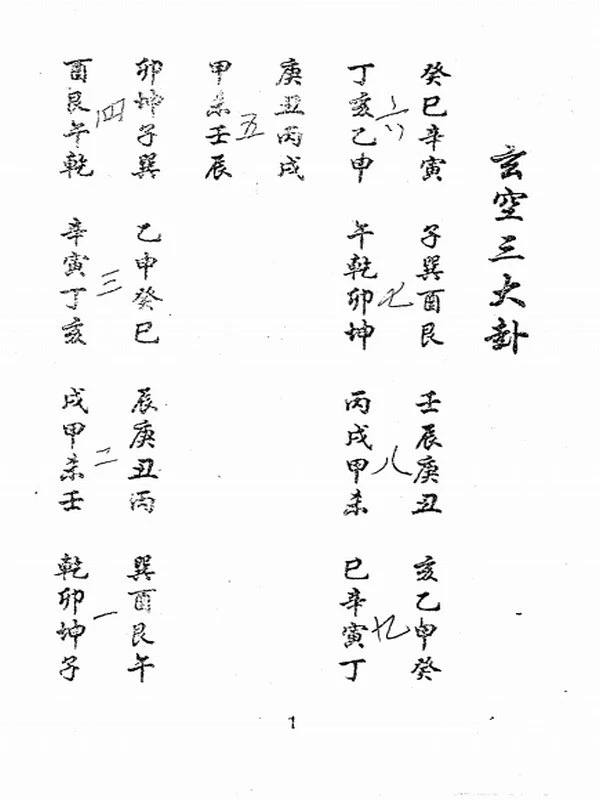 玄空三大卦
癸巳辛寅
六
丁亥乙申
子巽酉艮
七
午乾卯坤
壬辰庚丑
八
丙戌甲未
亥乙申癸
九
巳辛寅丁
庚丑丙戌
五
甲未壬辰
卯坤子巽
四
酉艮午乾
乙申癸巳
三
辛寅丁亥
辰庚丑丙
二
戌甲未壬
巽酉艮午
一
乾卯坤子
1